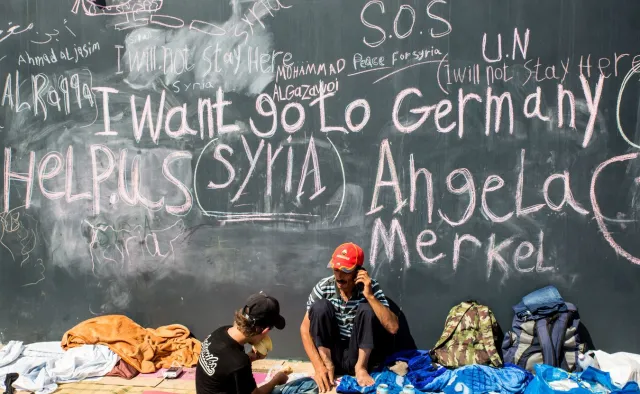 S.O.S
Ahmad al jasim
I will not Stay Here
Peace For syria
U N
syria
MOHAMMAD
ALGazawoi
I will not Stay Here
AL RAqqA
I want go to Germany
HeLP us
SyRiA
Angela
Merkel